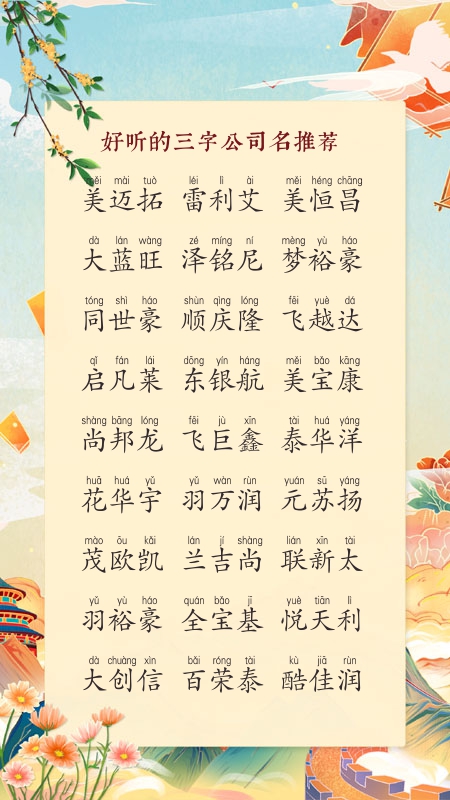 好听的三字公司名推荐
měi mài tuò léi lì ài měi héng chāng
美迈拓 雷利艾 美恒昌
dà lán wàng zé míng ní mèng yù háo
大蓝旺 泽铭尼 梦裕豪
tóng shì háo shùn qìng lóng fēi yuè dá
同世豪 顺庆隆 飞越达
qǐ fán lái dōng yín háng měi bǎo kāng
启凡莱 东银航 美宝康
shàng bāng lóng fēi jù xīn tài huá yáng
尚邦龙 飞巨鑫 泰华洋
huā huá yǔ yǔ wàn rùn yuán sū yáng
花华宇 羽万润 元苏扬
mào ōu kǎi lán jí shàng lián xīn tài
茂欧凯 兰吉尚 联新太
yǔ yù háo quán bǎo jī yuè tiān lì
羽裕豪 全宝基 悦天利
dà chuàng xìn bǎi róng tài kù jiā rùn
大创信 百荣泰 酷佳润